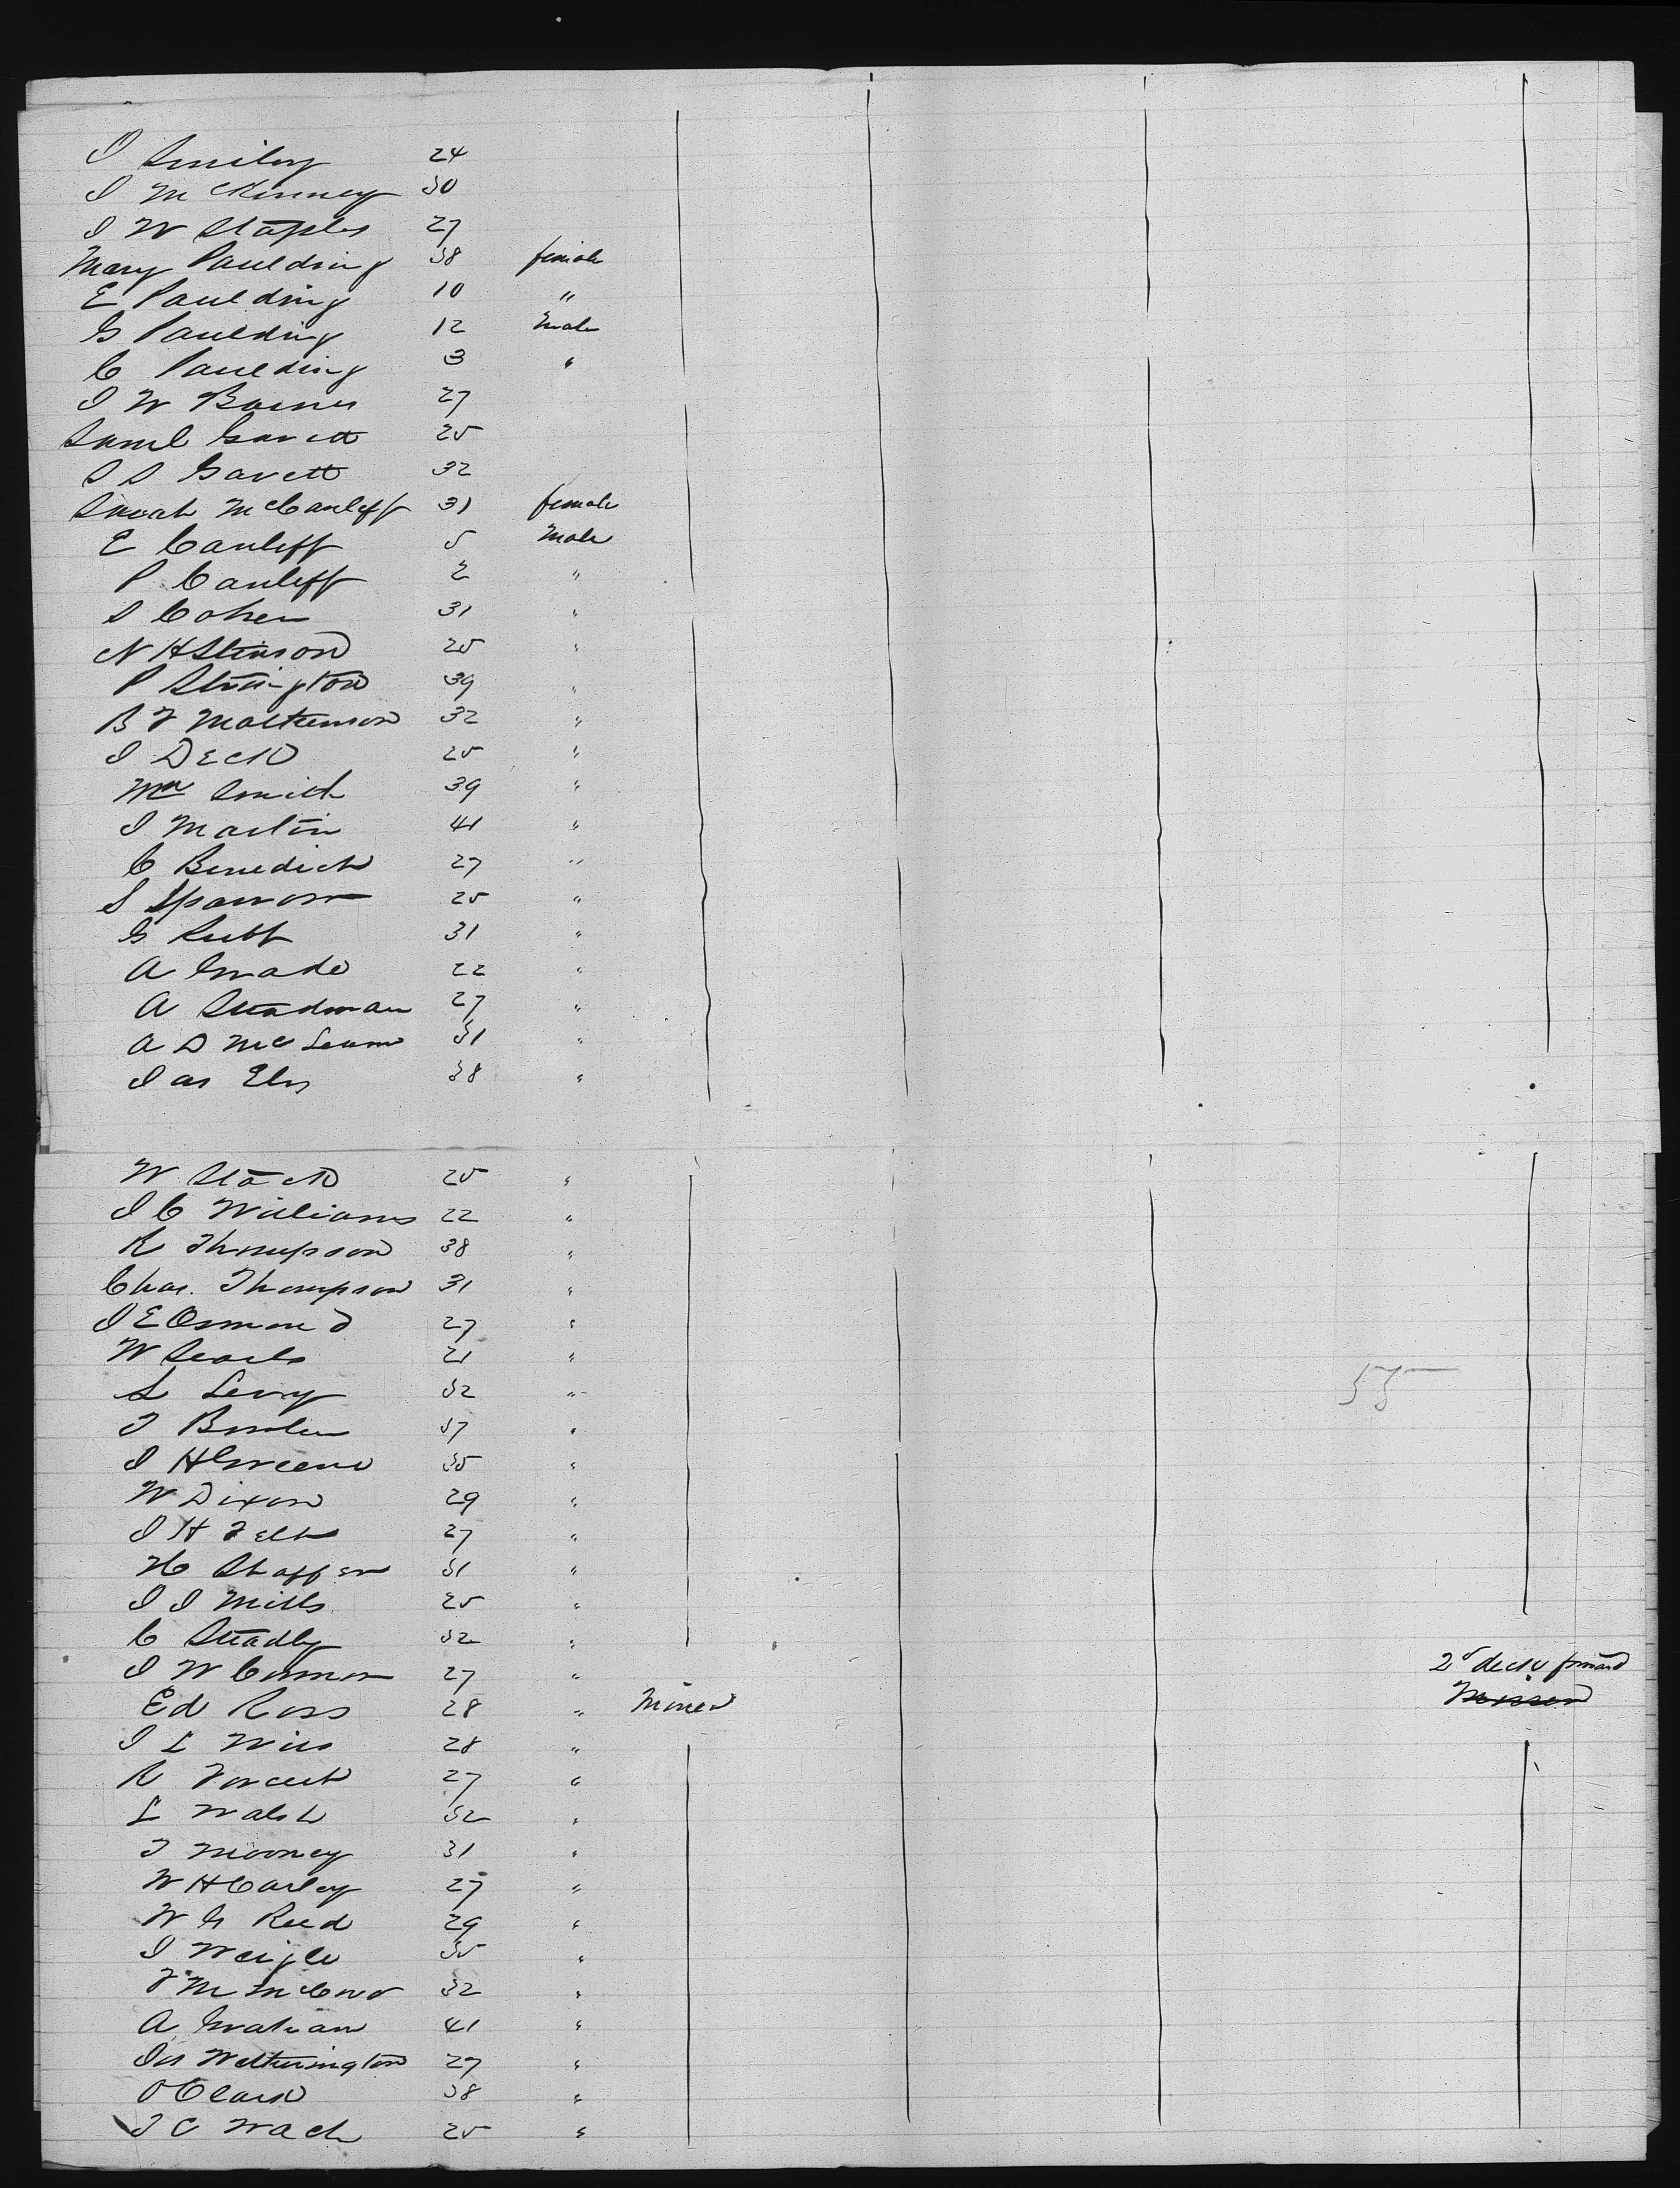 J Smiley 24
J McKinney 30
J W Staples 27
Mary Paulding 38 female
E Paulding 10 "
G Paulding 12 male
C Paulding 3 "
J W Barnes 27
Saml Gavett 25
S S Gavett 32
Sarah McCanleff 31 female
E Canleff 5 Male
P Canleff 2 "
S Cohen 31 "
N H Stinson 25 "
P Sterington 39 "
B F Mathewson 32 "
J Deck 25 "
Wm Smith 39 "
J Martin 41 "
C Benedict 27 "
S Sparrow 25 "
G Rutt 31 "
A Grade 22 "
A Steadman 27 "
A D Mc 31 "
Jas Ely 38 "
W Stack 25 "
J C Williams 22 "
R Thompson 38 "
Chas. Thompson 31 "
J E Osmond 27 "
W Searls 21 "
L Levy 32 "
55
T Bowlen 37 "
J H Greene 35 "
W Dixon 29 "
J H Felt 27 "
H Shaffer 31 "
J J Mills 25 "
C Steadly 32 "
J W Connor 27 " 2d deck forward
Ed Ross 28 " Miner
J L Wills 28 "
R Forcest 27 "
L Walsh 32 "
T Mooney 31 "
W H Carley 27 "
W G Reed 29 "
J Weigle 35 "
F M McCord 32 "
A Graham 41 "
Jas Wetherington 27 "
O Clark 38 "
T C Wach 25 "